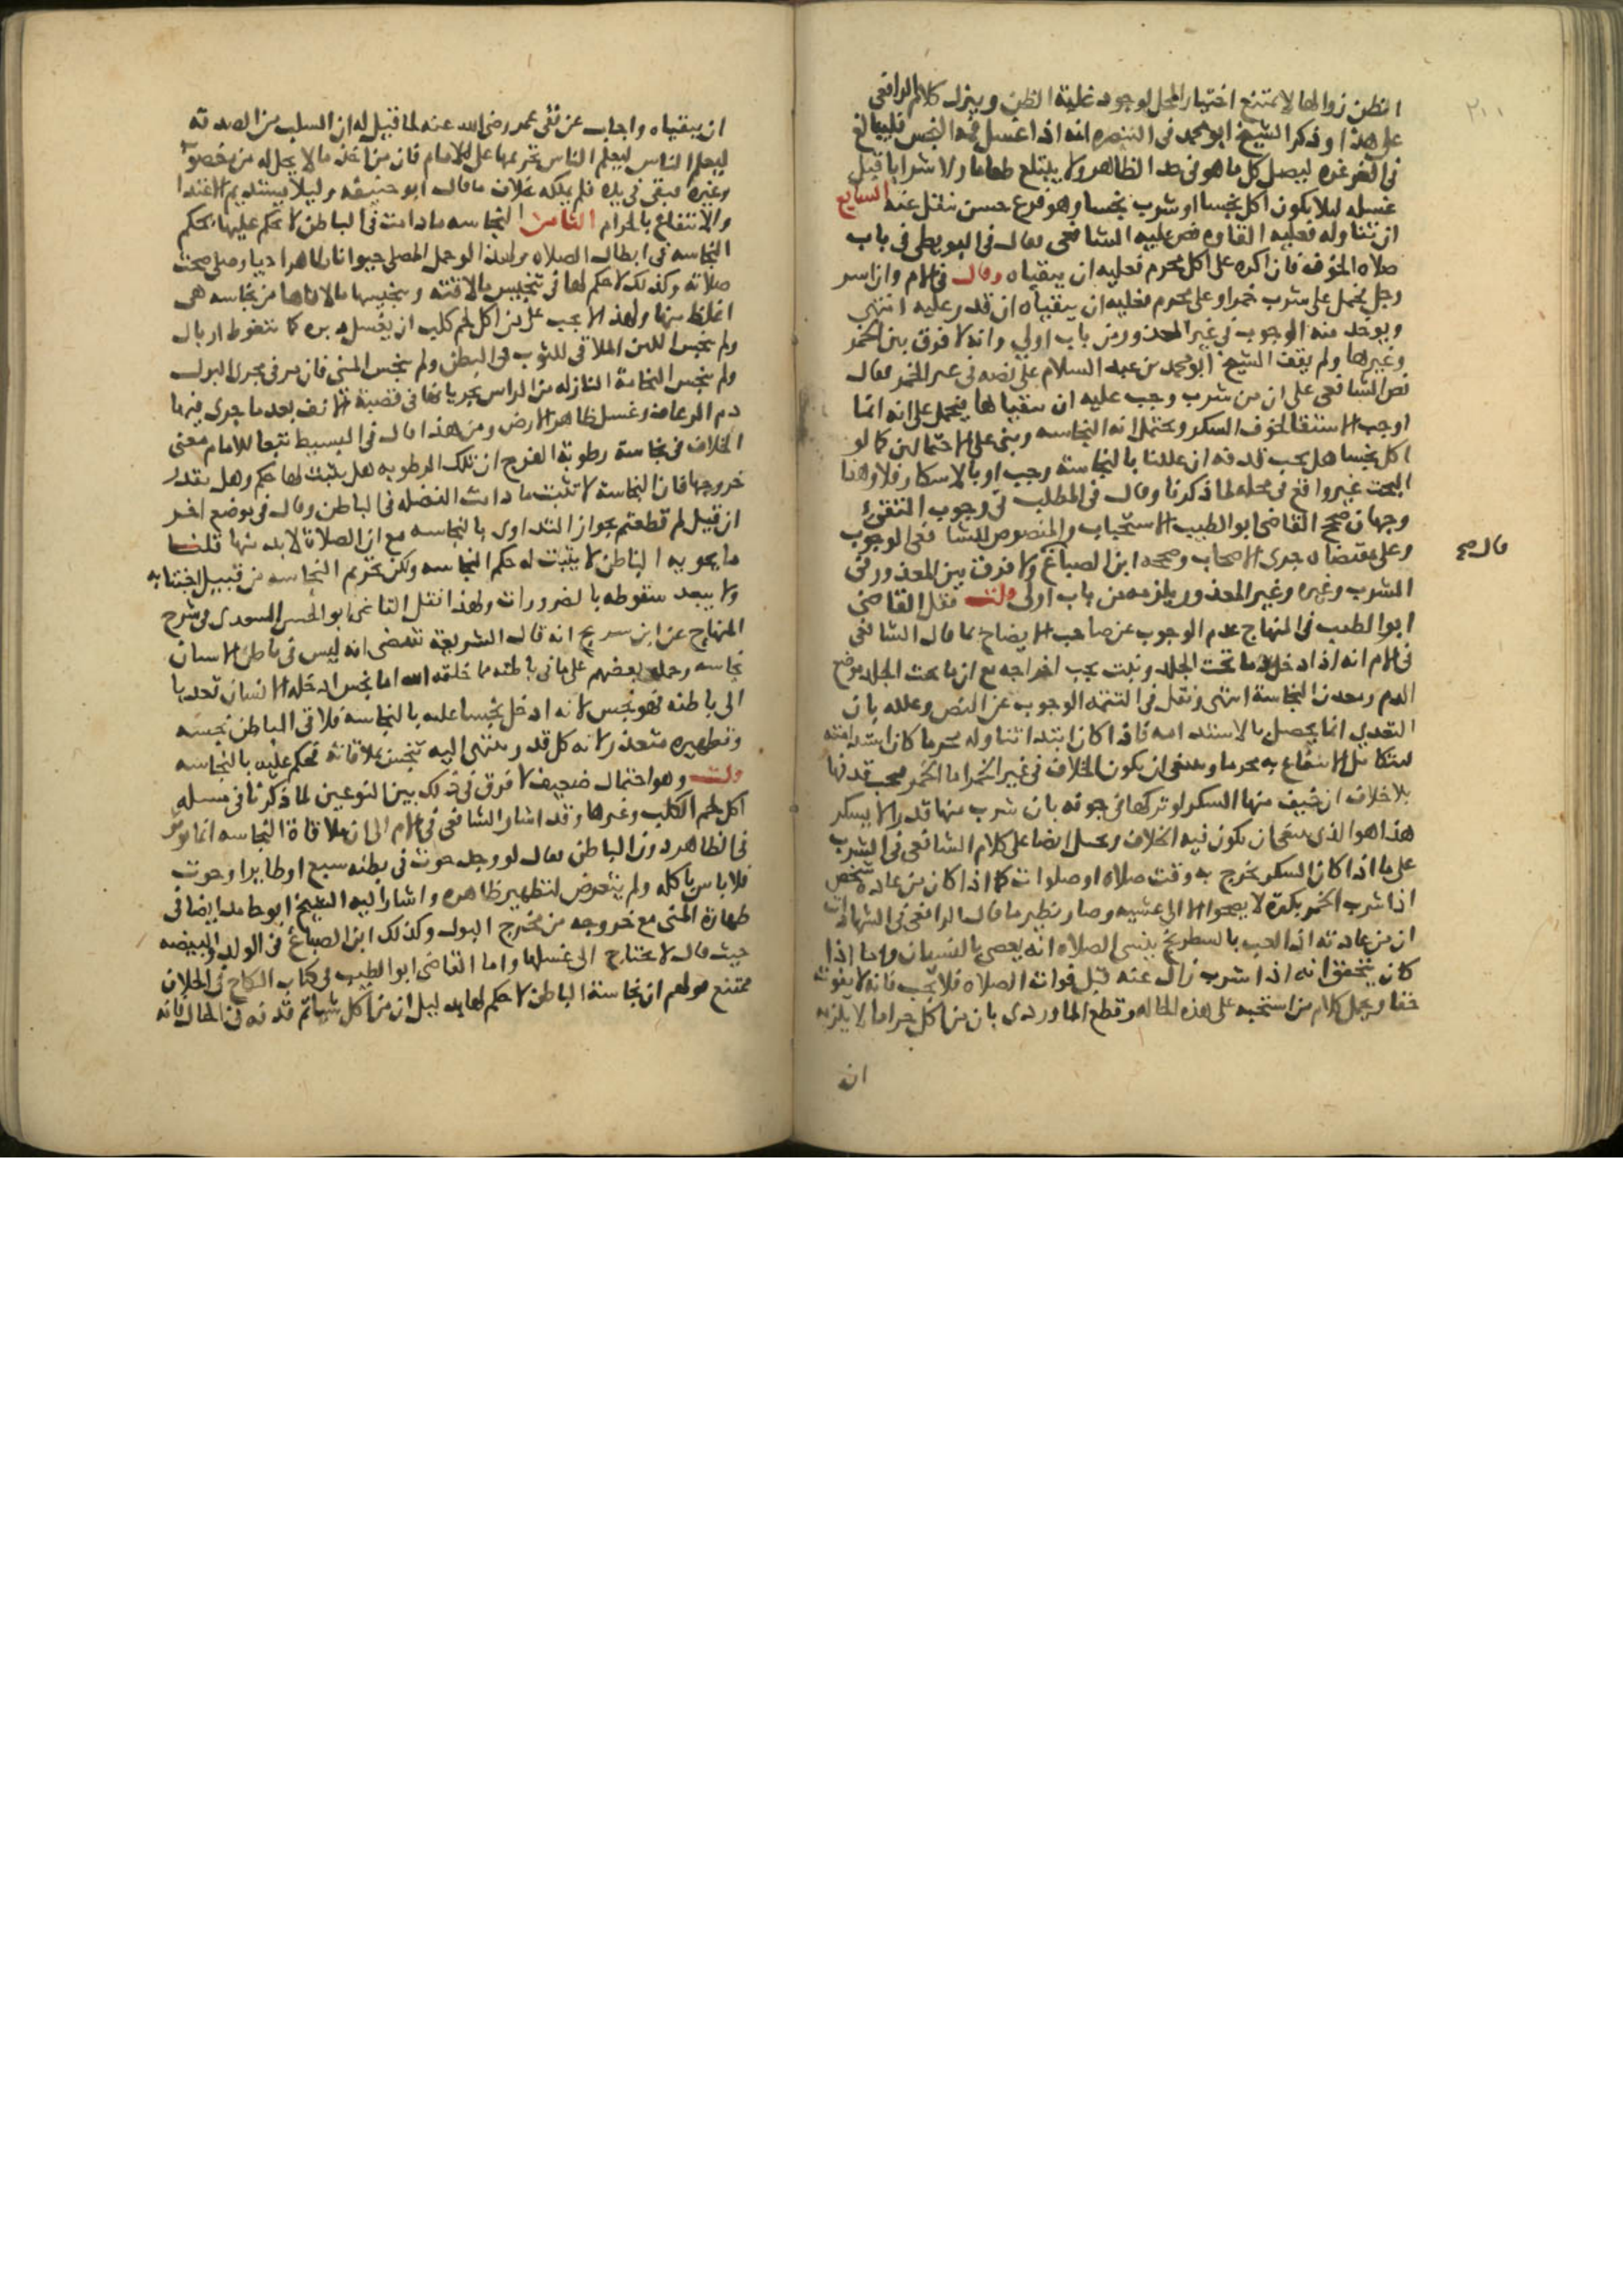 ٢١١
الظن زوالها لامتنع اختبار المحل لوجود غلبة الظن وينزل كلام الرافعي
على هذا وذكر الشيخ ابو محمد فى التبصره انه اذا غسل فمه النجس فليبالغ
فى الغرغره ليصل كل ما هو فى حد الظاهر ولا يبتلع طعاما ولا شرابا قبل
غسله ليلا يكون اكل نجسا او شرب نجسا وهو فرع حسن ينقل عنه السابع
ان تناوله فعليه القاوه نص عليه الشافعى فقال فى البويطى فى باب
صلاه الخوف فان اكره على اكل محرم فعليه ان يتقياه وقال فى الام وان اسر
رجل فحمل على شرب خمر او على محرم فعليه ان يتقياه ان قدر عليه انتهى
ويوخذ منه الوجوب فى غير المعذور من باب اولى وانه لا فرق بين الخمر
وغيرها ولم يقف الشيخ ابو محمد بن عبد السلام على نصه فى غير الخمر فقال
نص الشافعى على ان من شرب وجب عليه ان يتقياها فيحمل على انه انما
اوجب الاستقا لخوف السكر ويحتمل انه النجاسه وبنى على الاحتمالين كما لو
اكل نجسا هل يجب قذفه ان عللنا بالنجاسة وجب او بالاسكار فلا وهذا
البحث غير واقع فى محله لما ذكرنا وقال فى المطلب فى وجوب التقيؤ
وجهان صحح القاضى ابو الطيب الاستحباب والمنصوص للشافعى الوجوب
وعلى مقتضاه جرى الاصحاب وصححه ابن الصباغ ولا فرق بين المعذور فى
قال صح
الشرب وغيره وغير المعذور يلزمه من باب اولى قلت نقل القاضى
ابو الطيب فى المنهاج عدم الوجوب عن صاحب الايضاح كما قال الشافعى
فى الام انه اذا ادخل دما تحت الجلد ونبت يجب اخراجه مع ان ما تحت الجلد موضع
الدم ومعدن النجاسة انتهى ونقل فى التتمه الوجوب عن النص وعلله بان
التعدي انما يحصل بالاستدامه فاذا كان ابتدا تناوله محرما كان استدامته
الانتفاع به محرما وينبغى ان يكون الخلاف فى غير الخمر اما الخمر فيجب قذفها
بلا خلاف ان خيف منها السكر لو تركها فى جوفه بان شرب منها قدرا لا يسكر
هذا هو الذى ينبغى ان يكون فيه الخلاف ويحمل ايضا على كلام الشافعى فى الشرب
على ما اذا كان السكر يخرج به وقت صلاه او صلوات كما اذا كان من عادة شخص
اذا شرب الخمر بكرة لا يصحوا الا الى عشيه وصار نظير ما قال الرافعى فى الشهادات
ان من عادته اذا لعب بالشطرنج ينسى الصلاه انه يعصى بالنسيان واما اذا
كان يتحقق انه اذا شرب زال عنه قبل فوات الصلاه فلا يجب فانه لا يفوت
حقا ويحمل كلام من استحبه على هذه الحاله وقطع الماوردى بان من اكل حراما لا يلزمه
انه
ان يتقياه واجاب عن تقئ عمر رضى الله عنه لما قيل له ان السلب من الصدقة
ليعلم الناس ليعلم الناس تحريمها على الامام فان من اخذ مالا يحل له من خصوم
وغيره فبقى فى يده فلم يملكه بخلاف ما قال ابو حنيفه وليلا يستديم الاغتذا
والانتفاع بالحرام الثامن النجاسه مادامت فى الباطن لا يحكم عليها بحكم
النجاسه فى ابطال الصلاه ولهذا لو حمل المصلى حيوانا طاهرا حيا وصلى صحت
صلاته وكذلك لا حكم لها فى تنجيس ما لاقته وتنجيسها ما لاقاها من نجاسه هى
اغلظ منها ولهذا لا يجب على من اكل لحم كلب ان يغسل دبره كما تغوط او بال
ولم ينجس اللبن الملاقى للثوب فى البطن ولم ينجس المنى فان مر فى مجرى البول
ولم ينجس النخامة النازله من الراس بجريانها فى قصبة الانف بعد ما جرى فيها
دم الرعاف وغسل ظاهر الارض ومن هذا قال فى البسيط تبعا للامام معنى
الخلاف فى نجاسة رطوبة الفرج ان تلك الرطوبه هل يثبت لها حكم وهل يقدر
خروجها فان النجاسة لا تثبت ما دامت الفضله فى الباطن وقال فى موضع اخر
ان قيل لم قطعتم بجواز التداوى بالنجاسه مع ان الصلاة لابد منها قلنا
ما يحويه الباطن لا يثبت له حكم النجاسه ولكن تحريم النجاسه من قبيل اجتنابه
ولا يبعد سقوطه بالضرورات ولهذا نقل القاضى ابو الحسن السعدى فى شرح
المنهاج عن ابن سريج انه قال الشريعة تقتضى انه ليس فى باطن الانسان
نجاسه وحمله بعضهم على ما فى باطنه مما خلقه الله اما نجس ادخله الانسان تعديا
الى باطنه فهو نجس لانه ادخل نجسا عليه بالنجاسه فلاقى الباطن نجسه
وتطهيره متعذر لانه كل قدر ينتهى اليه تنجس بملاقاته فحكم عليه بالنجاسه
قلت وهو احتمال ضعيف لا فرق فى ذلك بين النوعين لما ذكرنا فى مسله
اكل لحم الكلب وغيرها وقد اشار الشافعى فى الام الى ان ملاقاة النجاسه انما يوثر
فى الظاهر دون الباطن فقال لو وجد حوت فى بطنه سبع او طايرا وحوت
فلا باس باكله ولم يتعرض لتطهير ظاهره واشار اليه الشيخ ابو حامد ايضا فى
طهارة المنى مع خروجه من مخرج البول وكذلك ابن الصباغ فى الولد والبيضه
حيث قال لا يحتاج الى غسلهما واما القاضى ابو الطيب فى كتاب النكاح فى الخلاف
فمتنع قولهم ان نجاسة الباطن لا حكم لها بدليل ان من اكل شيا ثم قذفه فى الحال فانه